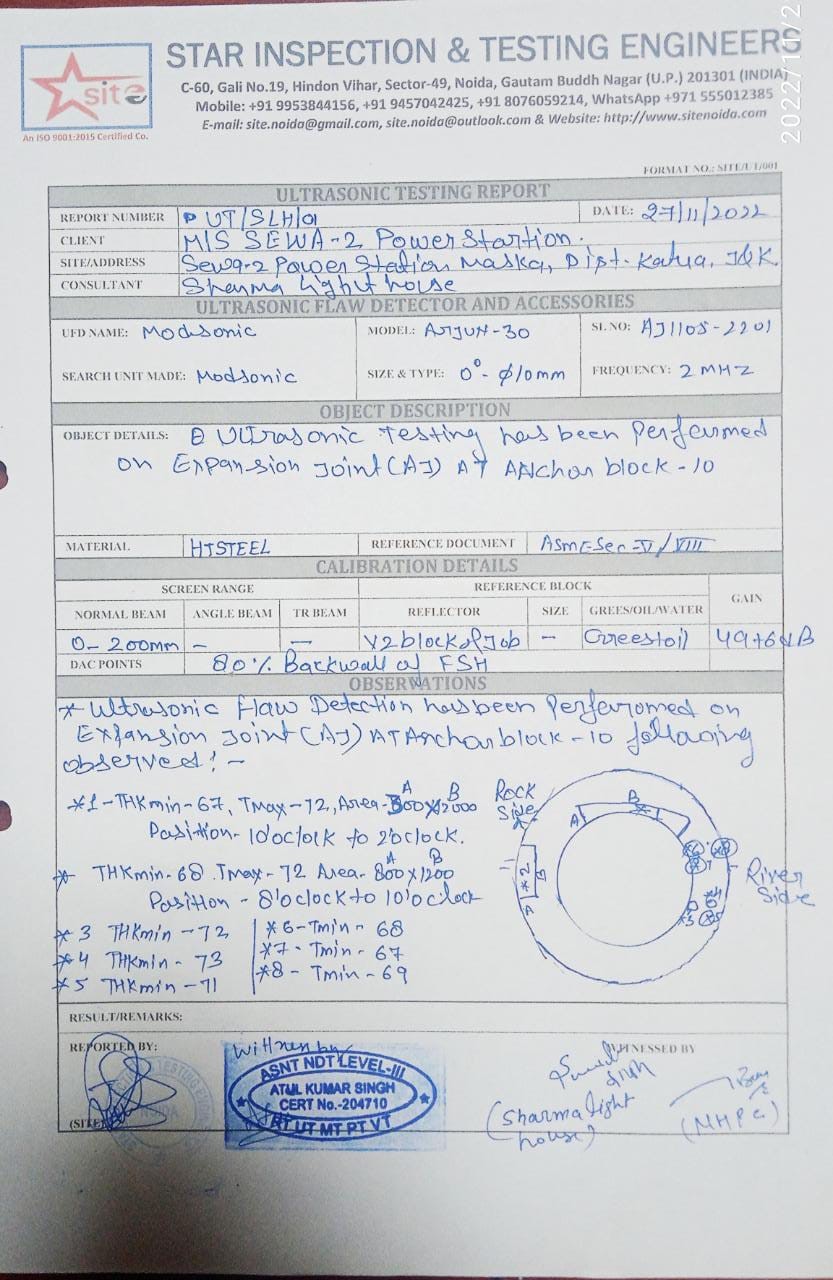 STAR INSPECTION & TESTING ENGINEERS
site
An ISO 9001:2015 Certified Co.
C-60, Gali No.19, Hindon Vihar, Sector-49, Noida, Gautam Buddh Nagar (U.P.) 201301 (INDIA)
Mobile: +91 9953844156, +91 9457042425, +91 8076059214, WhatsApp +971 555012385
E-mail: site.noida@gmail.com, site.noida@outlook.com & Website: http://www.sitenoida.com
FORMAT NO.: SITE/UT/001
ULTRASONIC TESTING REPORT
REPORT NUMBER UT/SLH/01 DATE: 27/11/2022
CLIENT M/S SEWA-2 Power Startion.
SITE/ADDRESS Sewa-2 Power Station Maska, Dist. Katua, J&K
CONSULTANT Sharma Light house
ULTRASONIC FLAW DETECTOR AND ACCESSORIES
UFD NAME: Modsonic MODEL: Arjun-30 SL NO: AJ1105-2201
SEARCH UNIT MADE: Modsonic SIZE & TYPE: 0°- φ10mm FREQUENCY: 2 MHZ
OBJECT DESCRIPTION
OBJECT DETAILS: Ultrasonic Testing has been Perfeurmed
on Expansion Joint (AJ) AT Anchor block - 10
MATERIAL HTSTEEL REFERENCE DOCUMENT Asme-Sec-V/VIII
CALIBRATION DETAILS
SCREEN RANGE REFERENCE BLOCK GAIN
NORMAL BEAM ANGLE BEAM TR BEAM REFLECTOR SIZE GREES/OIL/WATER
0-200mm - - V2 block of Job - Greestoil 49+6dB
DAC POINTS 80% Backwall of FSH
OBSERVATIONS
* Ultrasonic Flaw Detection has been Perfeuromed on
Expansion Joint (AJ) AT Anchor block - 10 following
observed! -
*1 - THKmin-67, Tmax-72, Area-300x12000
A B
Position- 10'oclock to 2'oclock.
* THKmin-68 Tmax-72 Area-800x1200
A B
Position - 8'oclock to 10'oclock
*3 THKmin - 72 *6 - Tmin - 68
*4 THKmin - 73 *7 - Tmin - 67
*5 THKmin - 71 *8 - Tmin - 69
Rock
Side
River
Side
A B *1
*2 B
A
*7
*3
RESULT/REMARKS:
REPORTED BY: Wittnes by WITNESSED BY
ASNT NDT LEVEL-III
ATUL KUMAR SINGH
CERT No.-204710
RT UT MT PT VT
(SITE)
(Sharma light
house)
(NHPC)